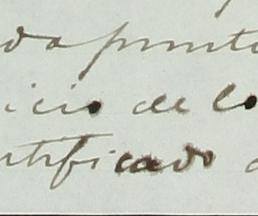 da punto
icio de lo
ntificado